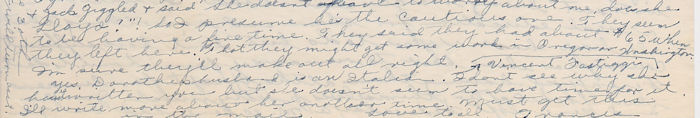 & Jack giggled & said "She doesn't have to worry about me, does she
Lloyd?"! So I presume he's the cautious one. They seem
to be having a fine time. They said they had about $65. When
they left here. That they might get some work in Oregon or Washington.
I'm sure they'll make out all right. Vincent
Yes, Dorothy's husband is an Italian. I don't see why she
hasn't written you but she doesn't seem to have time for it.
I'll write more about her another time. Must get this
in the mail. Love to all Francis